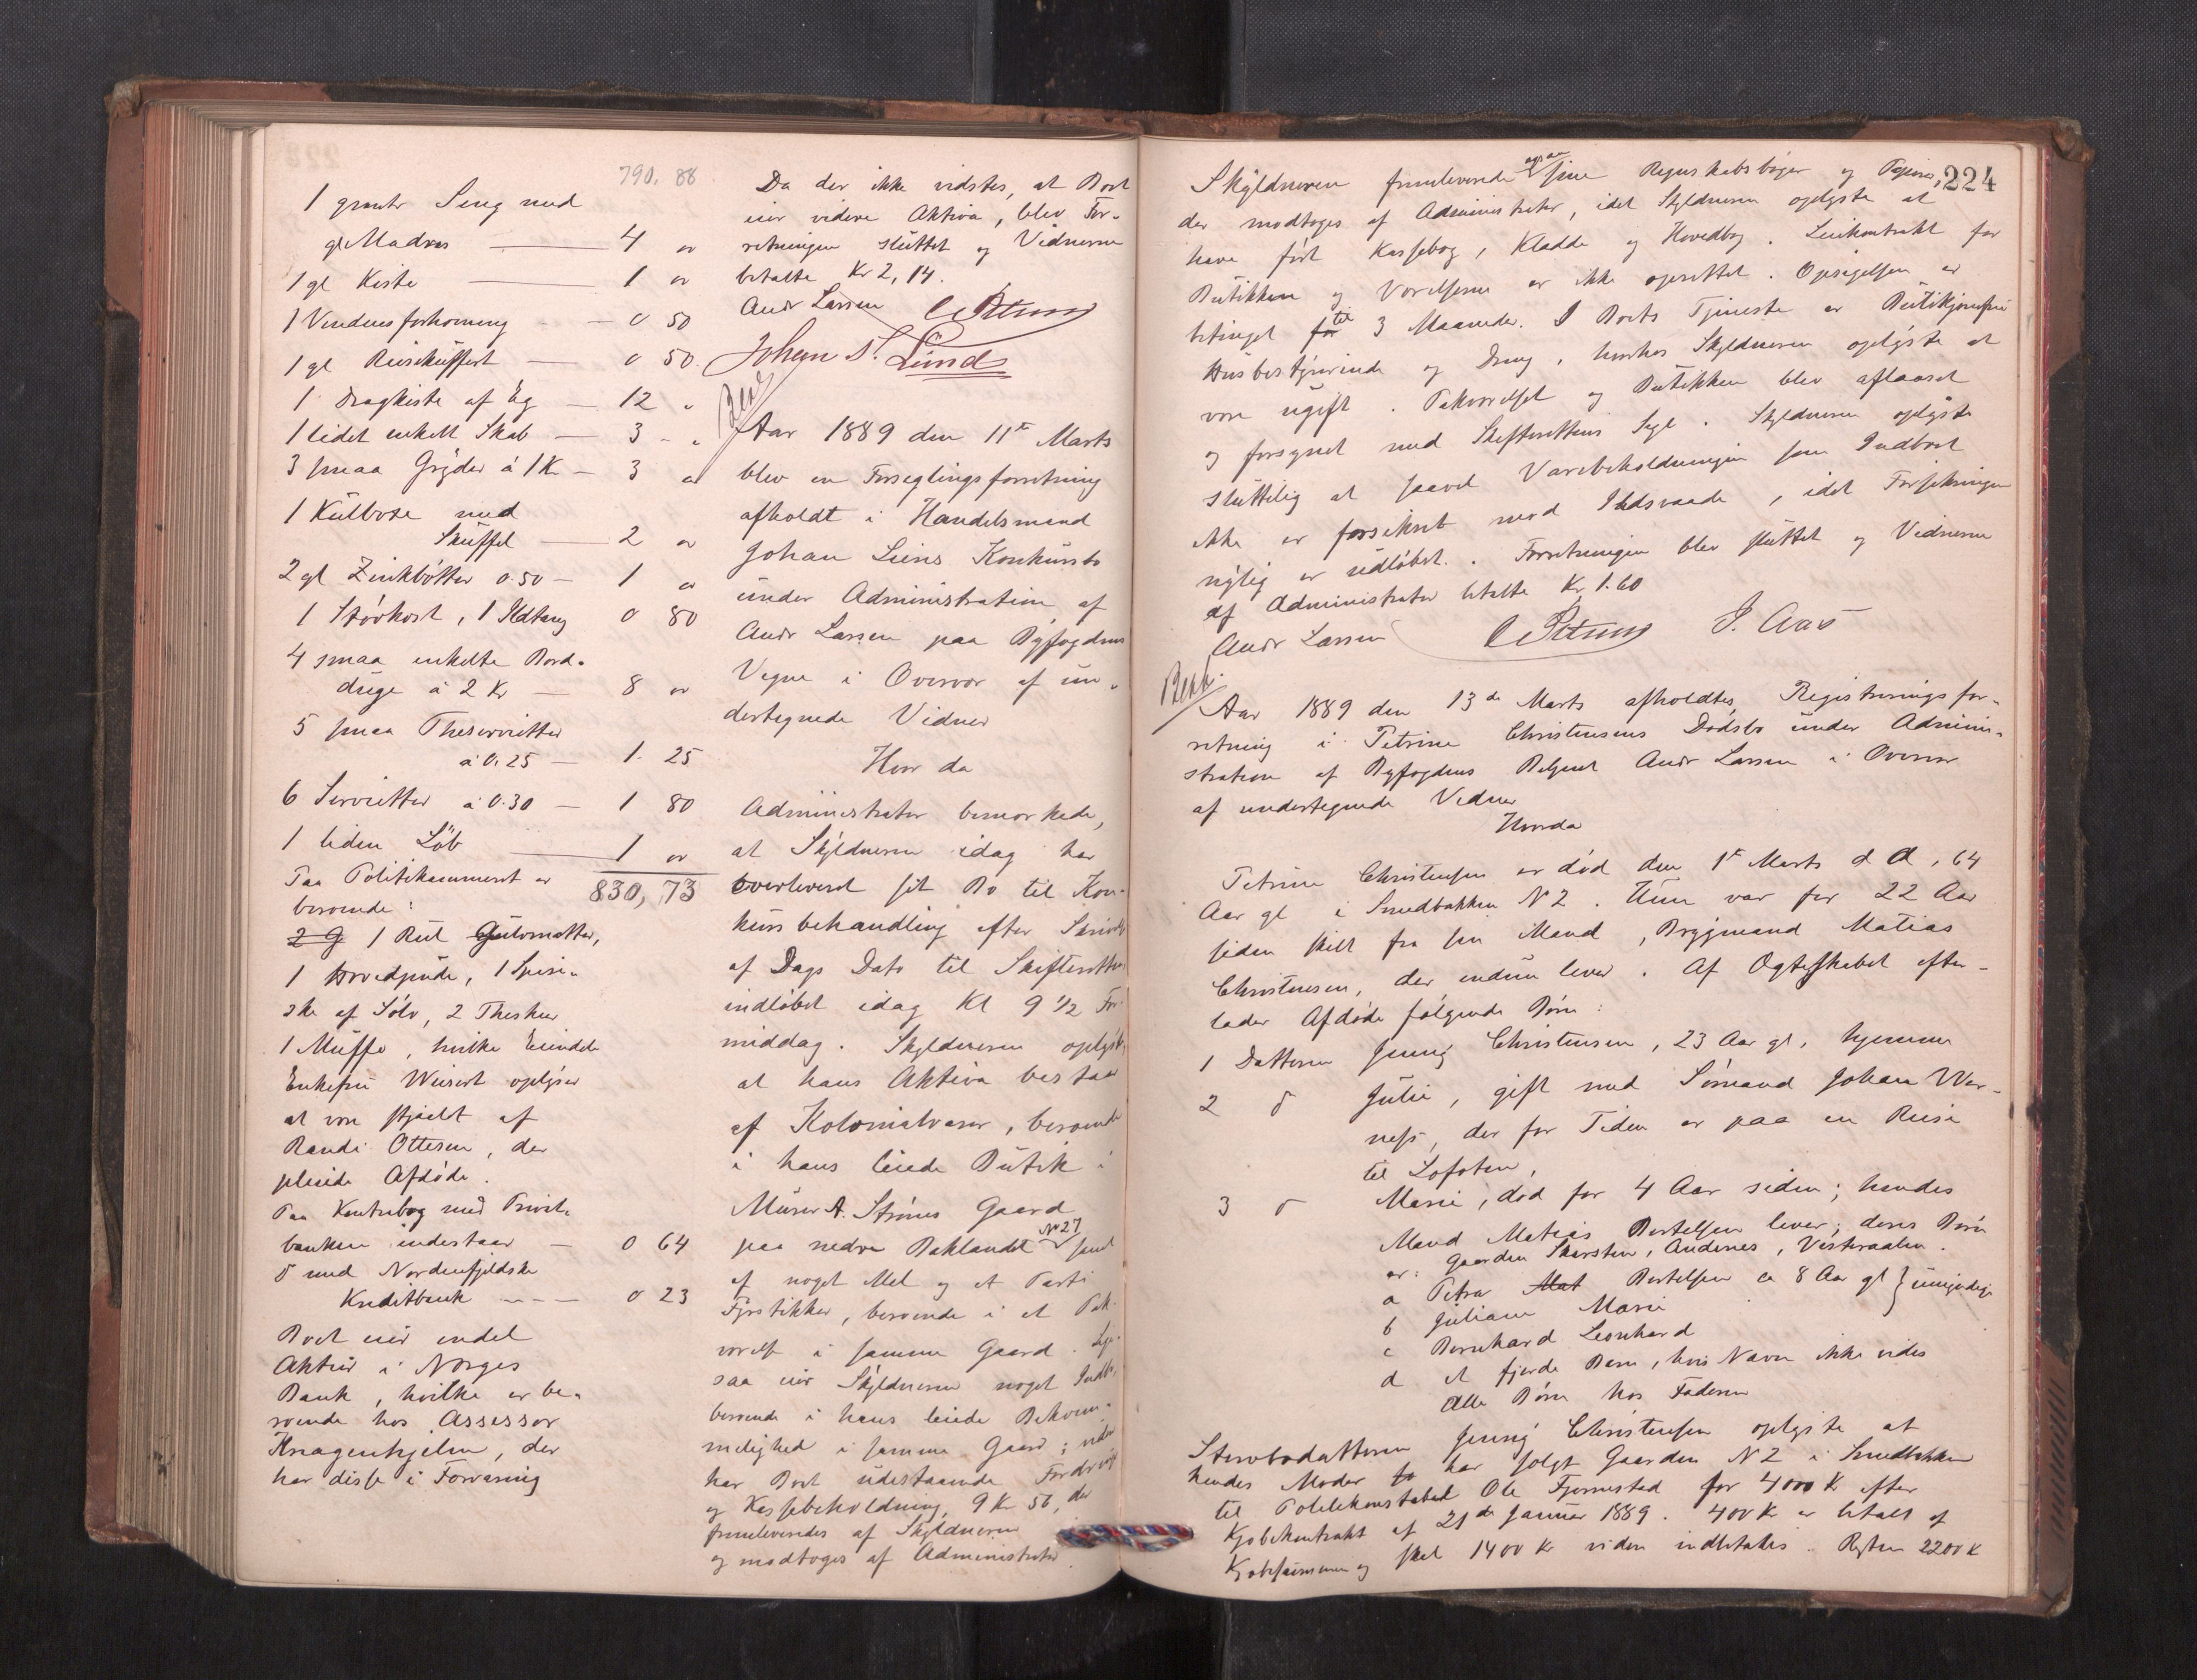 790. 88
1 Seng med
gl Madras 4 "
1 gl Kiste 1 "
1 Vinduesforhæng 0 50
1 gl Reisekuffert 0 50
1 Dragkiste af Eg 12 "
1 lidet enkelt Skab 3 "
3 smaa Gryder á 1 K 3 "
1 Kulboxe med
Skuffel 2 "
2 gl Zinkbøtter 0.50 1 "
1 Støvkost, 1 Ildtang 0 80
4 smaa enkelte Bord-
duge á 2 Kr 8 "
5 smaa Theservietter
á 0,25 1. 25
6 Servietter á 0.30 1 80
1 liden Løb 1 "
830,73
Paa Politikammeret er
beroende:
2 G 1 Rul Gulvmatter,
1 Hovedpude, 1 Spise-
ske af Sølv, 2 Theskeer
1 Muffe, hvilke Eiendele
Enkefru Weisert oplyser
at være stjaalet af
Randi Ottersen, der
pleiede Afdøde.
Paa Kontrabog med Privat-
banken indestaar 0 64
d med Nordenfjeldske
Kreditbank 0 23
Boet eier endel
Aktier i Norges
Bank, hvilke er be-
roende hos Assessor
Knagenhjelm, der
har disse i Forvaring
Da der ikke vidstes, at Boet
eier videre Aktiva, blev For-
retningen sluttet og Vidnerne
betalte Kr 2,14.
Andr Larsen
Johan S. Lund
Aar 1889 den 11te Marts
blev en Forseglingsforretning
afholdt i Handelsmand
Johan Liens Konkursbo
under Administration af
Andr Larsen paa Byfogdens
Vegne i Overvær af un-
dertegnede Vidner
Hvor da
Administrator bemærkede,
at Skyldneren idag har
overleveret sit Bo til Kon-
kursbehandling efter Skrivelse
af Dags Dato til Skifteretten
indløbet idag Kl 9 1/2 For-
middag. Skyldneren oplyste,
at hans Aktiva bestaar
af Kolonialvarer, beroende
i hans leiede Butik i
Murer A. Strøms Gaard
paa nedre Baklandet No 27 samt
af noget Mel og et Parti
Fyrstikker, beroende i et Pak-
værelse i samme Gaard. Lige-
saa eier Skyldneren noget Indbo,
beroende i hans leiede Bekvem-
melighed i samme Gaard; videre
har Boet udestaaende Fordringer
og Kassebeholdning 9 Kr 56, der
fremleveredes af Skyldneren
og modtoges af Administrator.
224
Skyldneren fremleverede ogsaa sine Regnskabsbøger og Papirer,
der modtoges af Administrator, idet Skyldneren oplyste at
have ført Kassebog, Kladde og Hovedbog. Leiekontrakt for
Butikken og Værelserne er ikke oprettet. Opsigelsen er
betinget for til 3 Maaneder. I Boets Tjeneste er Butikjomfru
Husbestyrerinde og Dreng, hvorhos Skyldneren oplyste at
være ugift. Pakværelset og Butikken blev aflaaset
og forsynet med Skifterettens Segl. Skyldneren oplyste
sluttelig at saavel Varebeholdningen som Indboet
ikke er forsikret mod Ildsvaade, idet Forsikringen
nylig er udløbet. Forretningen blev sluttet og Vidnerne
af Administrator betalte Kr 1.60
Andr Larsen J. Aas
Aar 1889 den 13de Marts afholdtes Registreringsfor-
retning i Petrine Christensens Dødsbo under Admini-
stration af Byfogdens Betjent Andr Larsen i Overvær
af undertegnede Vidner
Hvorda
Petrine Christensen er død den 1te Marts d A, 64
Aar gl i Smedbakken No 2. Hun var for 22 Aar
siden skilt fra sin Mand, Brygmand Matias
Christensen, der endnu lever. Af Ægteskabet efter-
lader Afdøde følgende Børn:
1 Datteren Jenny Christensen, 23 Aar gl, hjemme
2 d Julie, gift med Sømand Johan War-
ness, der for Tiden er paa en Reise
til Lofoten,
3 d Marie, død for 4 Aar siden; hendes
Mand Matias Bertelsen lever; deres Børn
er: Gaarden Skarsten, Andenes, Vesteraalen.
a Petra Mat Bertelsen ca 8 Aar gl } umyndige
b Juliane Marie
c Bernhard Leonhard
d et fjerde Barn, hvis Navn ikke vides
alle Børn hos Faderen
Stervbodatteren Jenny Christensen oplyste at
hendes Moder har solgt Gaarden No 2 i Smedbakken
til Politikonstabel Ole Fjernestad for 4000 Kr efter
Kjøbekontrakt af 21de Januar 1889. 400 Kr er betalt af
Kjøbesummen og skal 1400 Kr videre indbetales. Resten 2200 K